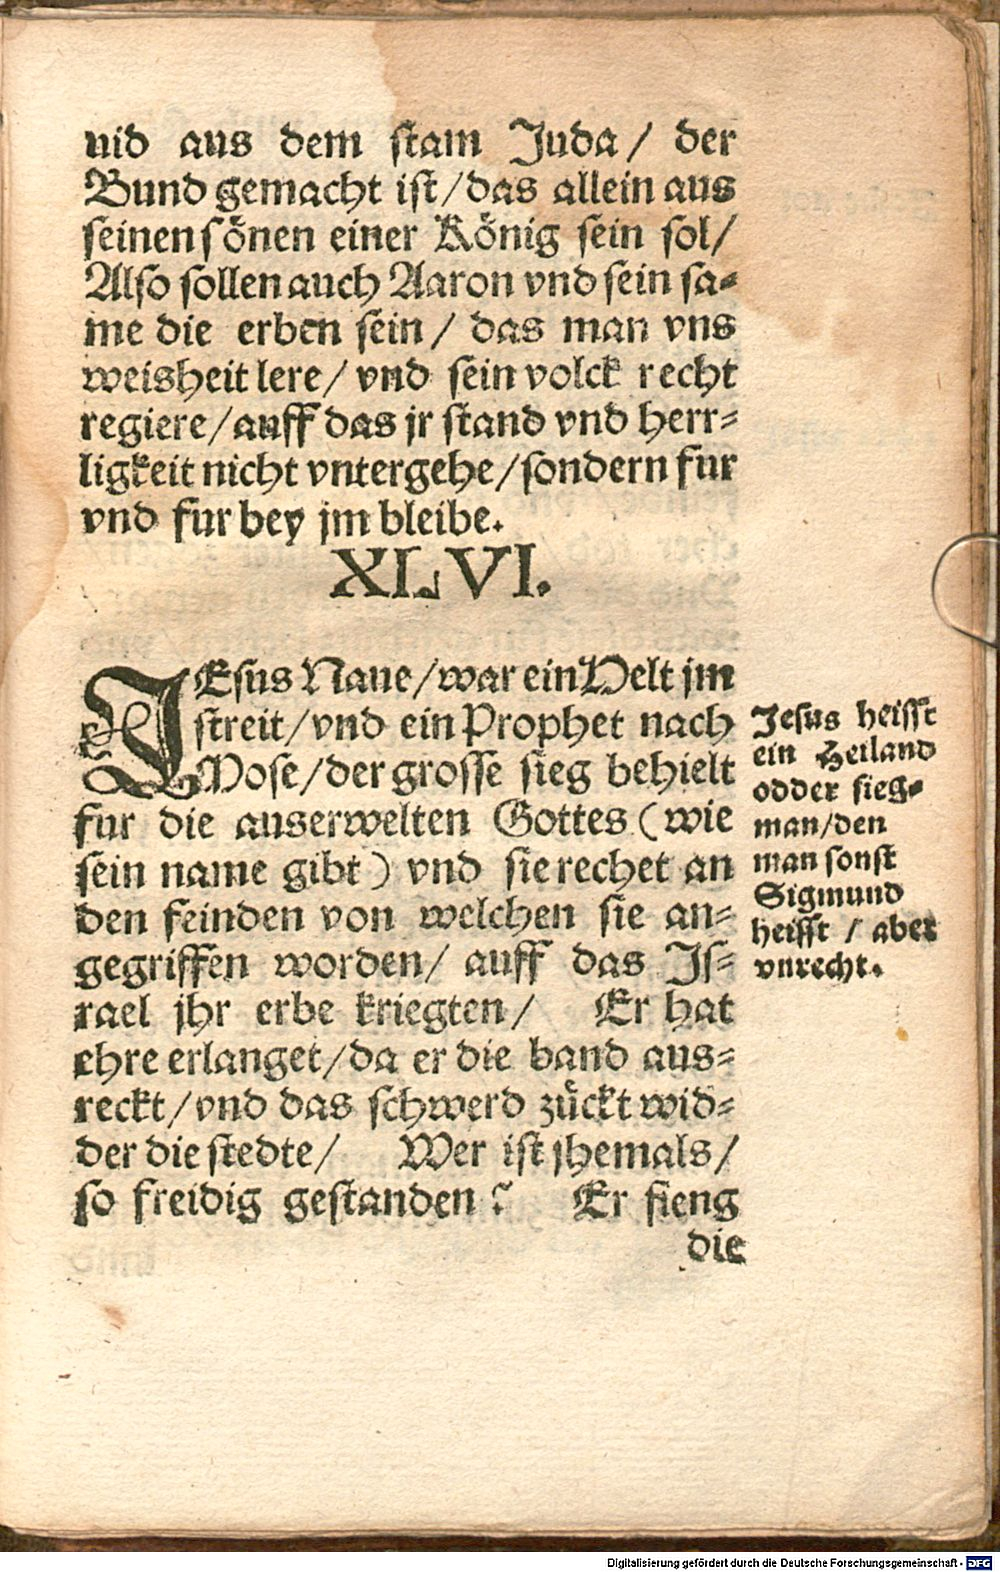 uid aus dem stam Juda/ der
Bund gemacht ist/das allein aus
seinen sönen einer König sein sol/
Also sollen auch Aaron vnd sein sa⸗
me die erben sein/ das man vns
weisheit lere/ vnd sein volck recht
regiere/auff das jr stand vnd herr⸗
ligkeit nicht vntergehe/sondern fur
vnd fur bey jm bleibe.
XLVI.
JEsus Naue/war ein Helt jm
streit/vnd ein Prophet nach
Mose/der grosse sieg behielt
fur die auserwelten Gottes (wie
sein name gibt) vnd sie rechet an
den feinden von welchen sie an⸗
gegriffen worden/ auff das Js⸗
rael jhr erbe kriegten/ Er hat
ehre erlanget/da er die hand aus⸗
reckt/vnd das schwerd zückt wid⸗
der die stedte/ Wer ist jhemals/
so freidig gestanden? Er fieng
die
Jesus heisst
ein Heiland
odder sieg⸗
man/den
man sonst
Sigmund
heisst / aber
vnrecht.
Digitalisierung gefördert durch die Deutsche Forschungsgemeinschaft - DFG